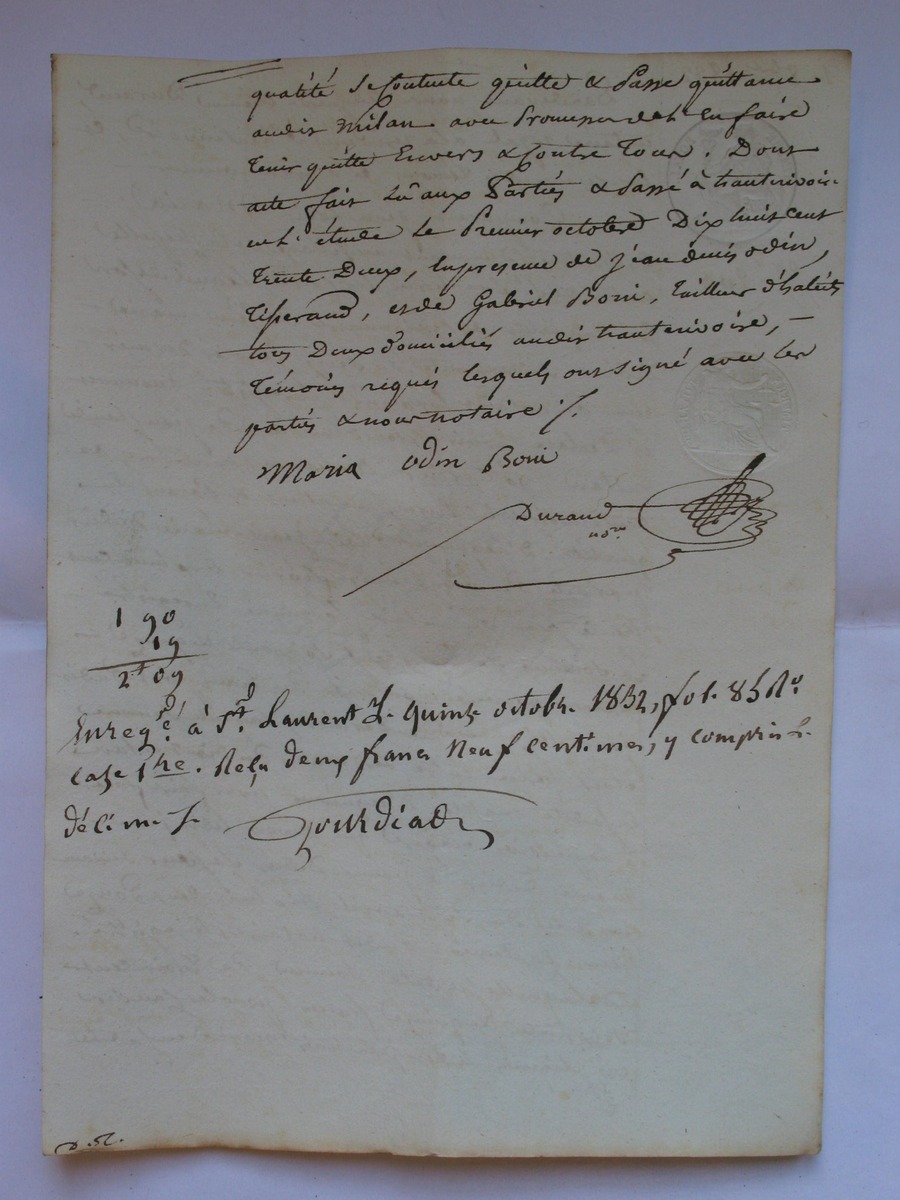 qualité se Contente quitte & passe quittance
audit Milan avec promesse de l'en faire
tenir quitte envers & contre tous. Dont
acte fait lû aux Parties & passé à hauterivoire
en l'étude le Premier octobre Dix huit cent
trente Deux, en presence de jean denis odin,
tisserand, et de Gabriel Boni, tailleur d'habits
tous Deux domiciliés audit hauterivoire, -
témoins requis lesquels ont signé avec les
parties & nous notaire ./.
Maria odin Boni
Durand
no.re
1 90
19
2 f 09
Enreg.é à St. Laurent le quinze octobre 1832, fol. 85 Ro
case 1re. Reçu deux francs neuf centimes, y compris le
décime /.